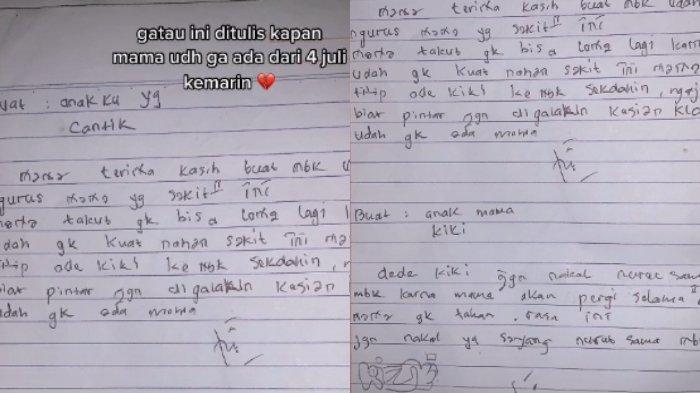 gatau ini ditulis kapan
mama udh ga ada dari 4 juli
kemarin 💔
: anak ku yg
cantik
mama terima kasih buat mbk
ngurus mama yg sakit" ini
mama takut gk bisa lama lagi
udah gk kuat nahan sakit ini
titip ade kiki ke mbk sekolahin,
biar pintar jgn di galakin kasian
udah gk ada mama
mama terima kasih buat mbk udah
ngurus mama yg sakit" ini
mama takut gk bisa lama lagi karna
udah gk kuat nahan sakit ini mama
titip ade kiki ke mbk sekolahin, ngaj
biar pintar jgn di galakin kasian klo
udah gk ada mama
Buat : anak mama
kiki
dede kiki jgn nakal nurut sama
mbk karna mama akan pergi selama"
mama gk tahan rasa ini
jgn nakal ya sayang nurut sama mbk